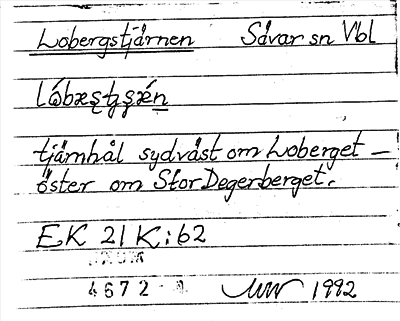 Lobergstjärnen Sävar sn Vbl
tjärnhål sydväst om Loberget –
öster om Stor Degerberget.
EK 21K:62
4672 1992